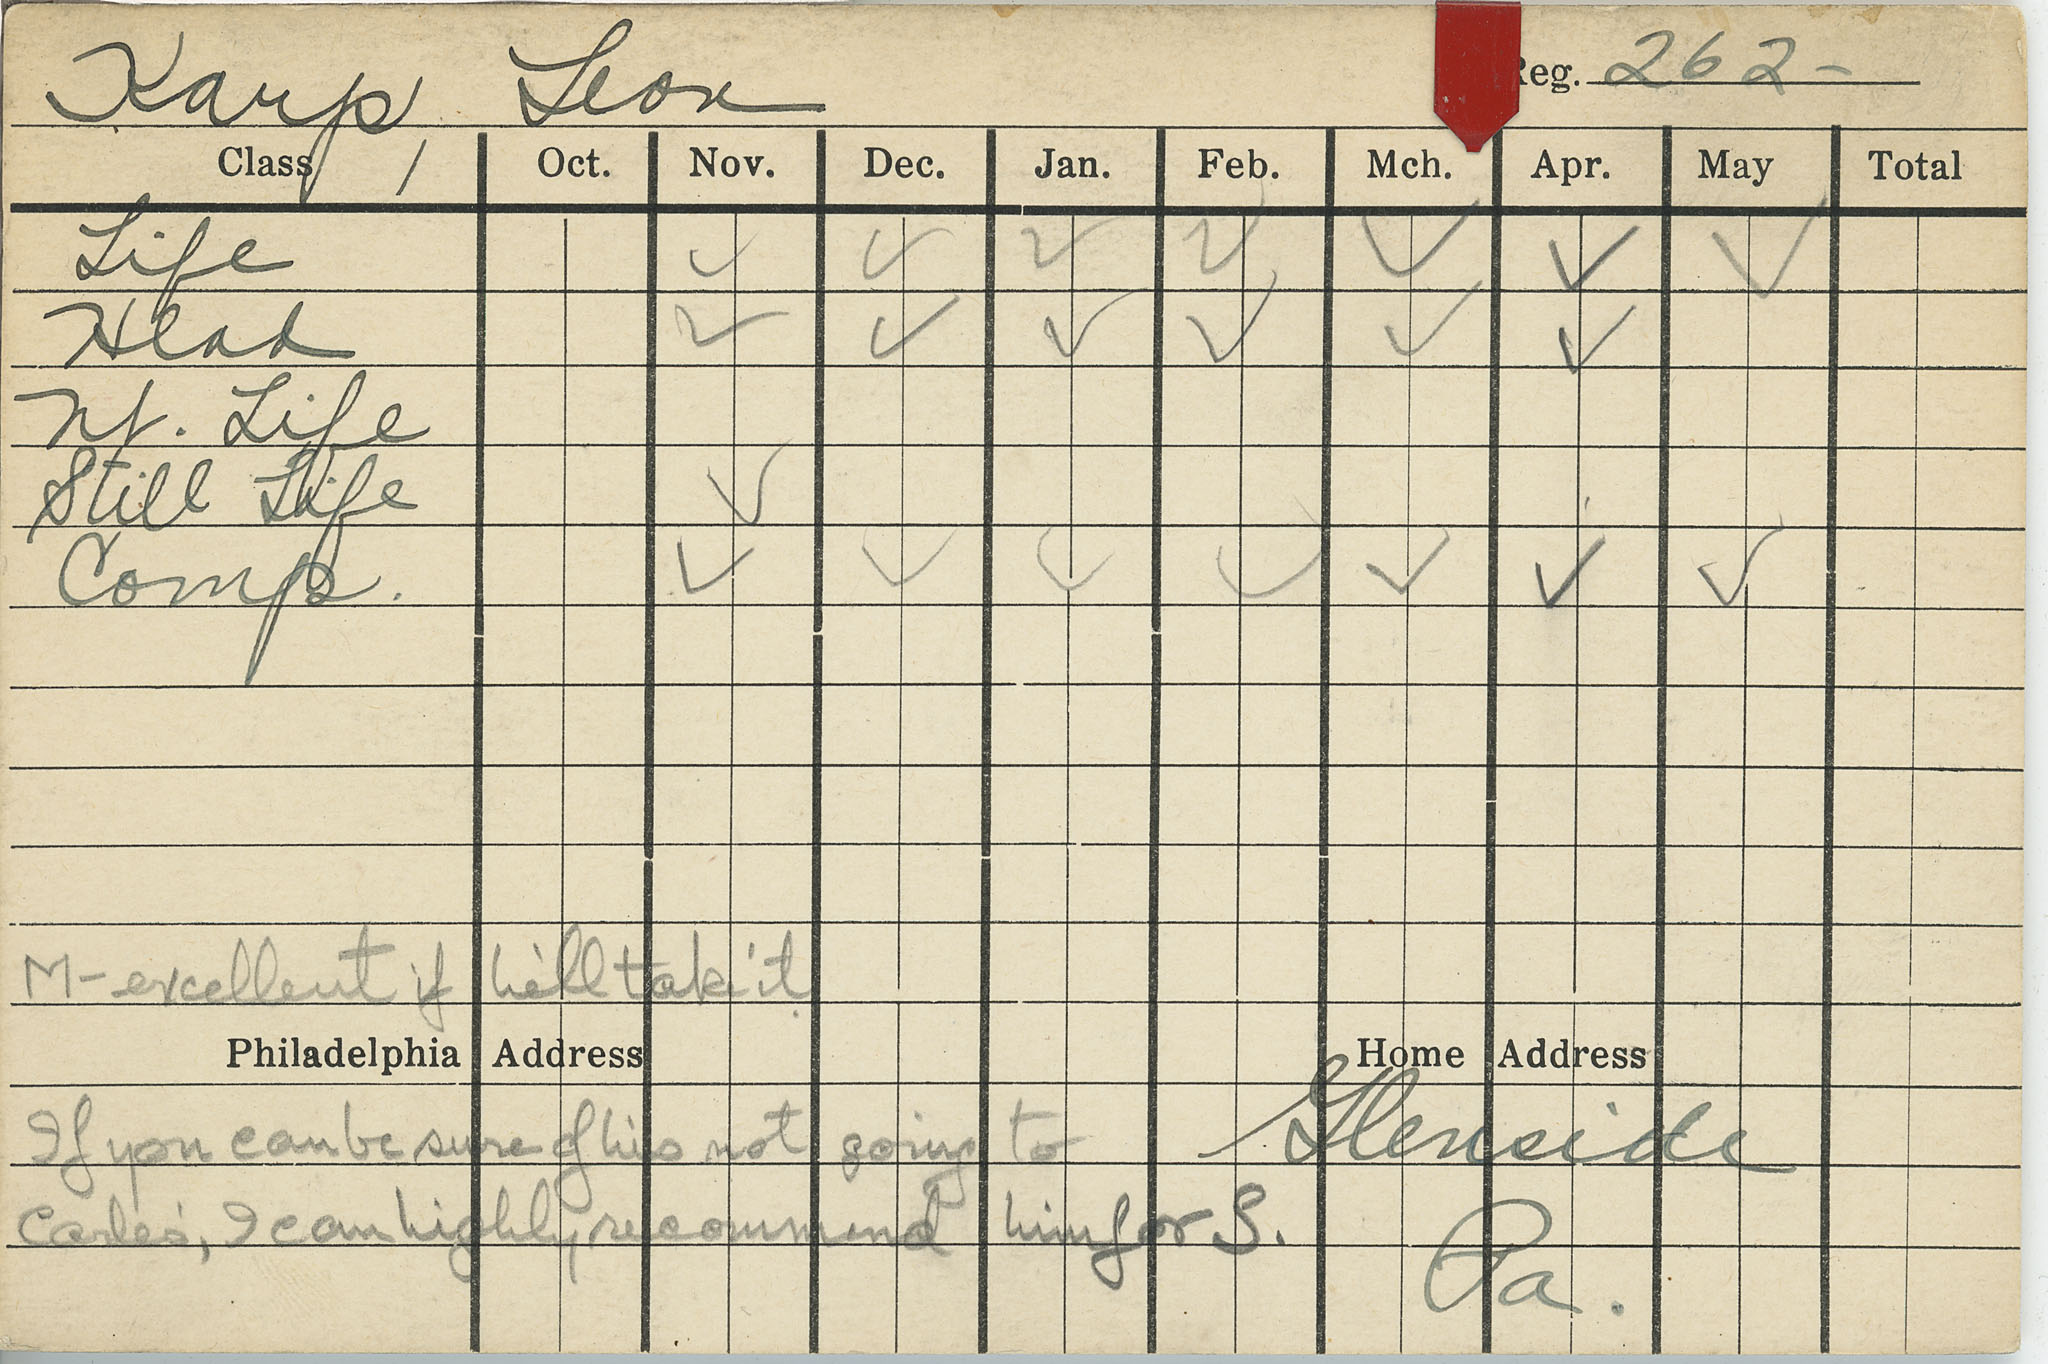 Karp, Leon Reg. 262-
Class Oct. Nov. Dec. Jan. Feb. Mch. Apr. May Total
Life ✓ ✓ ✓ ✓ ✓ ✓ ✓
Head ✓ ✓ ✓ ✓ ✓ ✓
Nt. Life
Still Life ✓
Comp. ✓ ✓ ✓ ✓ ✓ ✓ ✓
M-excellent if he'll take it.
Philadelphia Address Home Address
If you can be sure of his not going to Glenside
Carles', I can highly recommend him for S.
Pa.